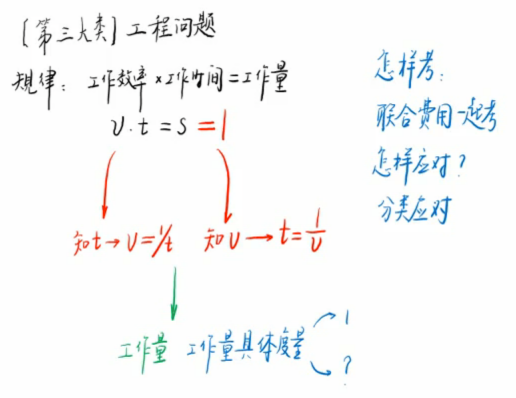 [第三大类]工程问题
规律：工作效率×工作时间=工作量
v.t=s=1
知t→v=1/t 知v→t=1/v
工作量 工作量具体度量 1
?
怎样考：
联合费用一起考
怎样应对？
分类应对